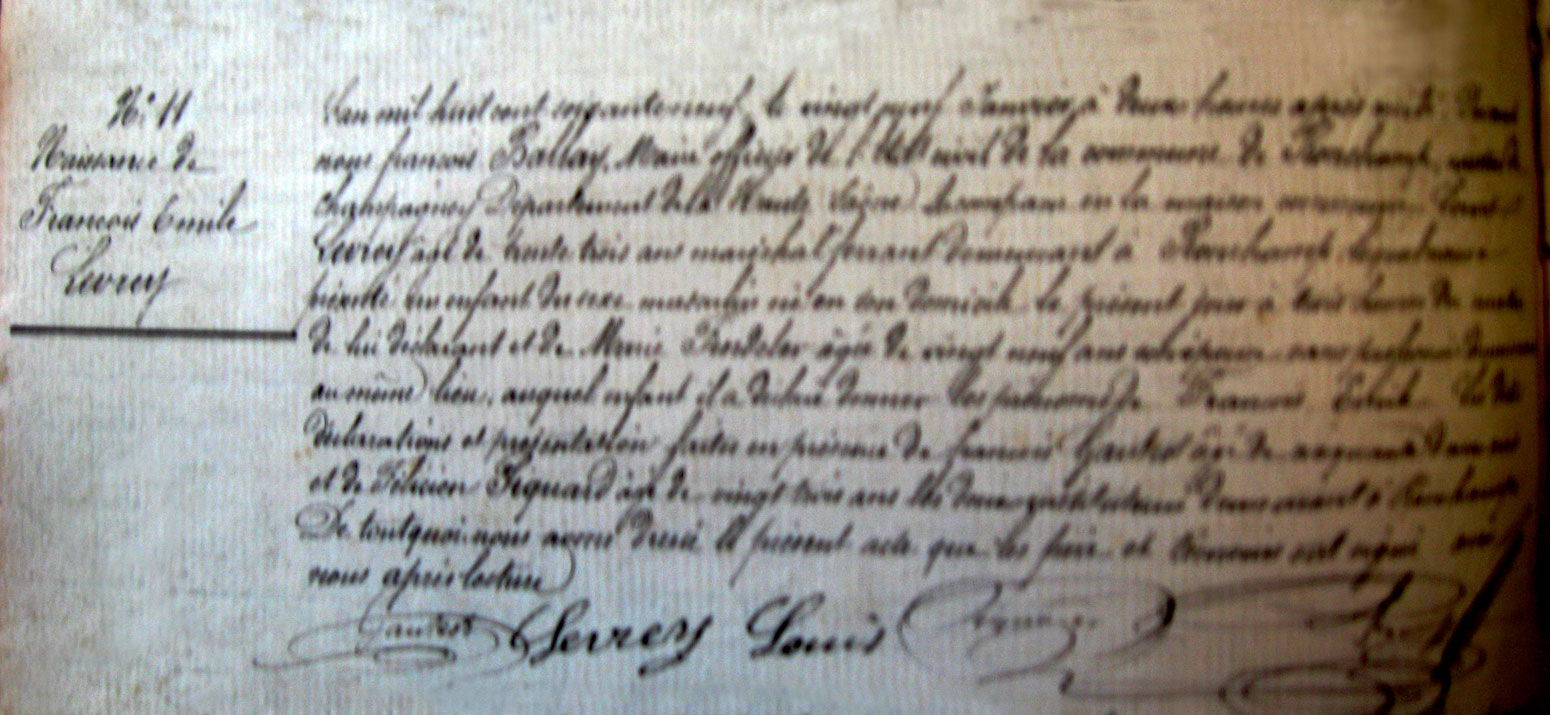 N° 11
Naissance de
François Emile
Levrey
L'an mil huit cent soixante neuf, le vingt neuf Janvier à deux heures après midi. Devant
nous françois Ballay, Maire officier de l'état civil de la commune de Ronchamp, canton de
Champagney Département de la Haute Saône, est comparu en la maison commune Louis
Levrey agé de trente trois ans maréchal ferrant demeurant à Ronchamp, lequel nous a
présenté un enfant du sexe masculin né en son domicile le présent jour à trois heures du matin
de lui déclarant et de Marie âgée de vingt neuf ans son épouse sans profession demeurant
au même lieu, auquel enfant il a déclaré donner les prénoms de François Emile. Les dites
déclarations et présentation faites en présence de françois Gautrot âgé de cinquante deux ans
et de Félicien Piguard âgé de vingt trois ans tous deux instituteurs demeurant à Ronchamp
De tout quoi nous avons dressé le présent acte que les père et témoins ont signé avec
nous après lecture
Gautrot Levrey Louis